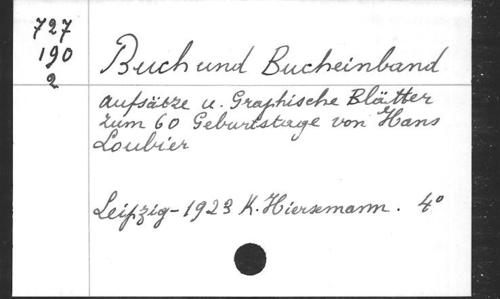 727
190
2
Buch und Bucheinband
aufsätze u. Graphische Blätter
zum 60 Geburtstage von Hans
Loubier
Leipzig-1923 K. Hiersemann. 4°